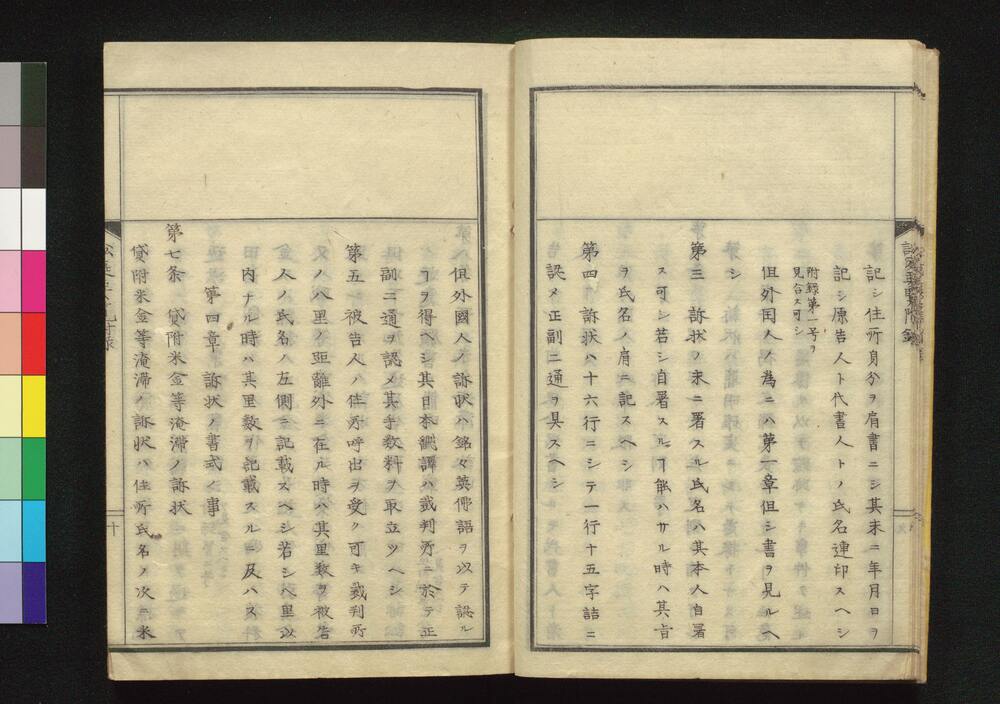 記シ住所身分ヲ肩書ニシ其末ニ年月日ヲ
記シ原告人ト代書人トノ氏名連印スヘシ
附録第二号ヲ
見合ス可シ
但外国人ノ為ニハ第一章但シ書ヲ見ルヘ
シ
第三 訴状ノ末ニ署スル氏名ハ其本人自署
ス可シ若シ自署スルヿ能ハサル時ハ其旨
ヲ氏名ノ肩ニ記スヘシ
第四 訴状ハ十六行ニシテ一行十五字詰ニ
認メ正副二通ヲ具スヘシ
但外國人ノ訴状ハ銘々英佛語ヲ以テ認ル
ヿヲ得ヘシ其日本飜譯ハ裁判所ニ於テ正
副二通ヲ認メ其手数料ヲ取立ツヘシ
第五 被告人ノ住所呼出ヲ受ク可キ裁判所
ノ八里
距離外ニ在ル時ハ其里数ヲ被告
人ノ氏名ノ左側ニ記載スヘシ若シ八里以
内ナル時ハ其里数ヲ記載スルニ及ハス
第四章 訴状ノ書式ノ事
第七条 貸附米金等淹滞ノ訴状
貸附米金等淹滞ノ訴状ハ住所氏名ノ次ニ米
十